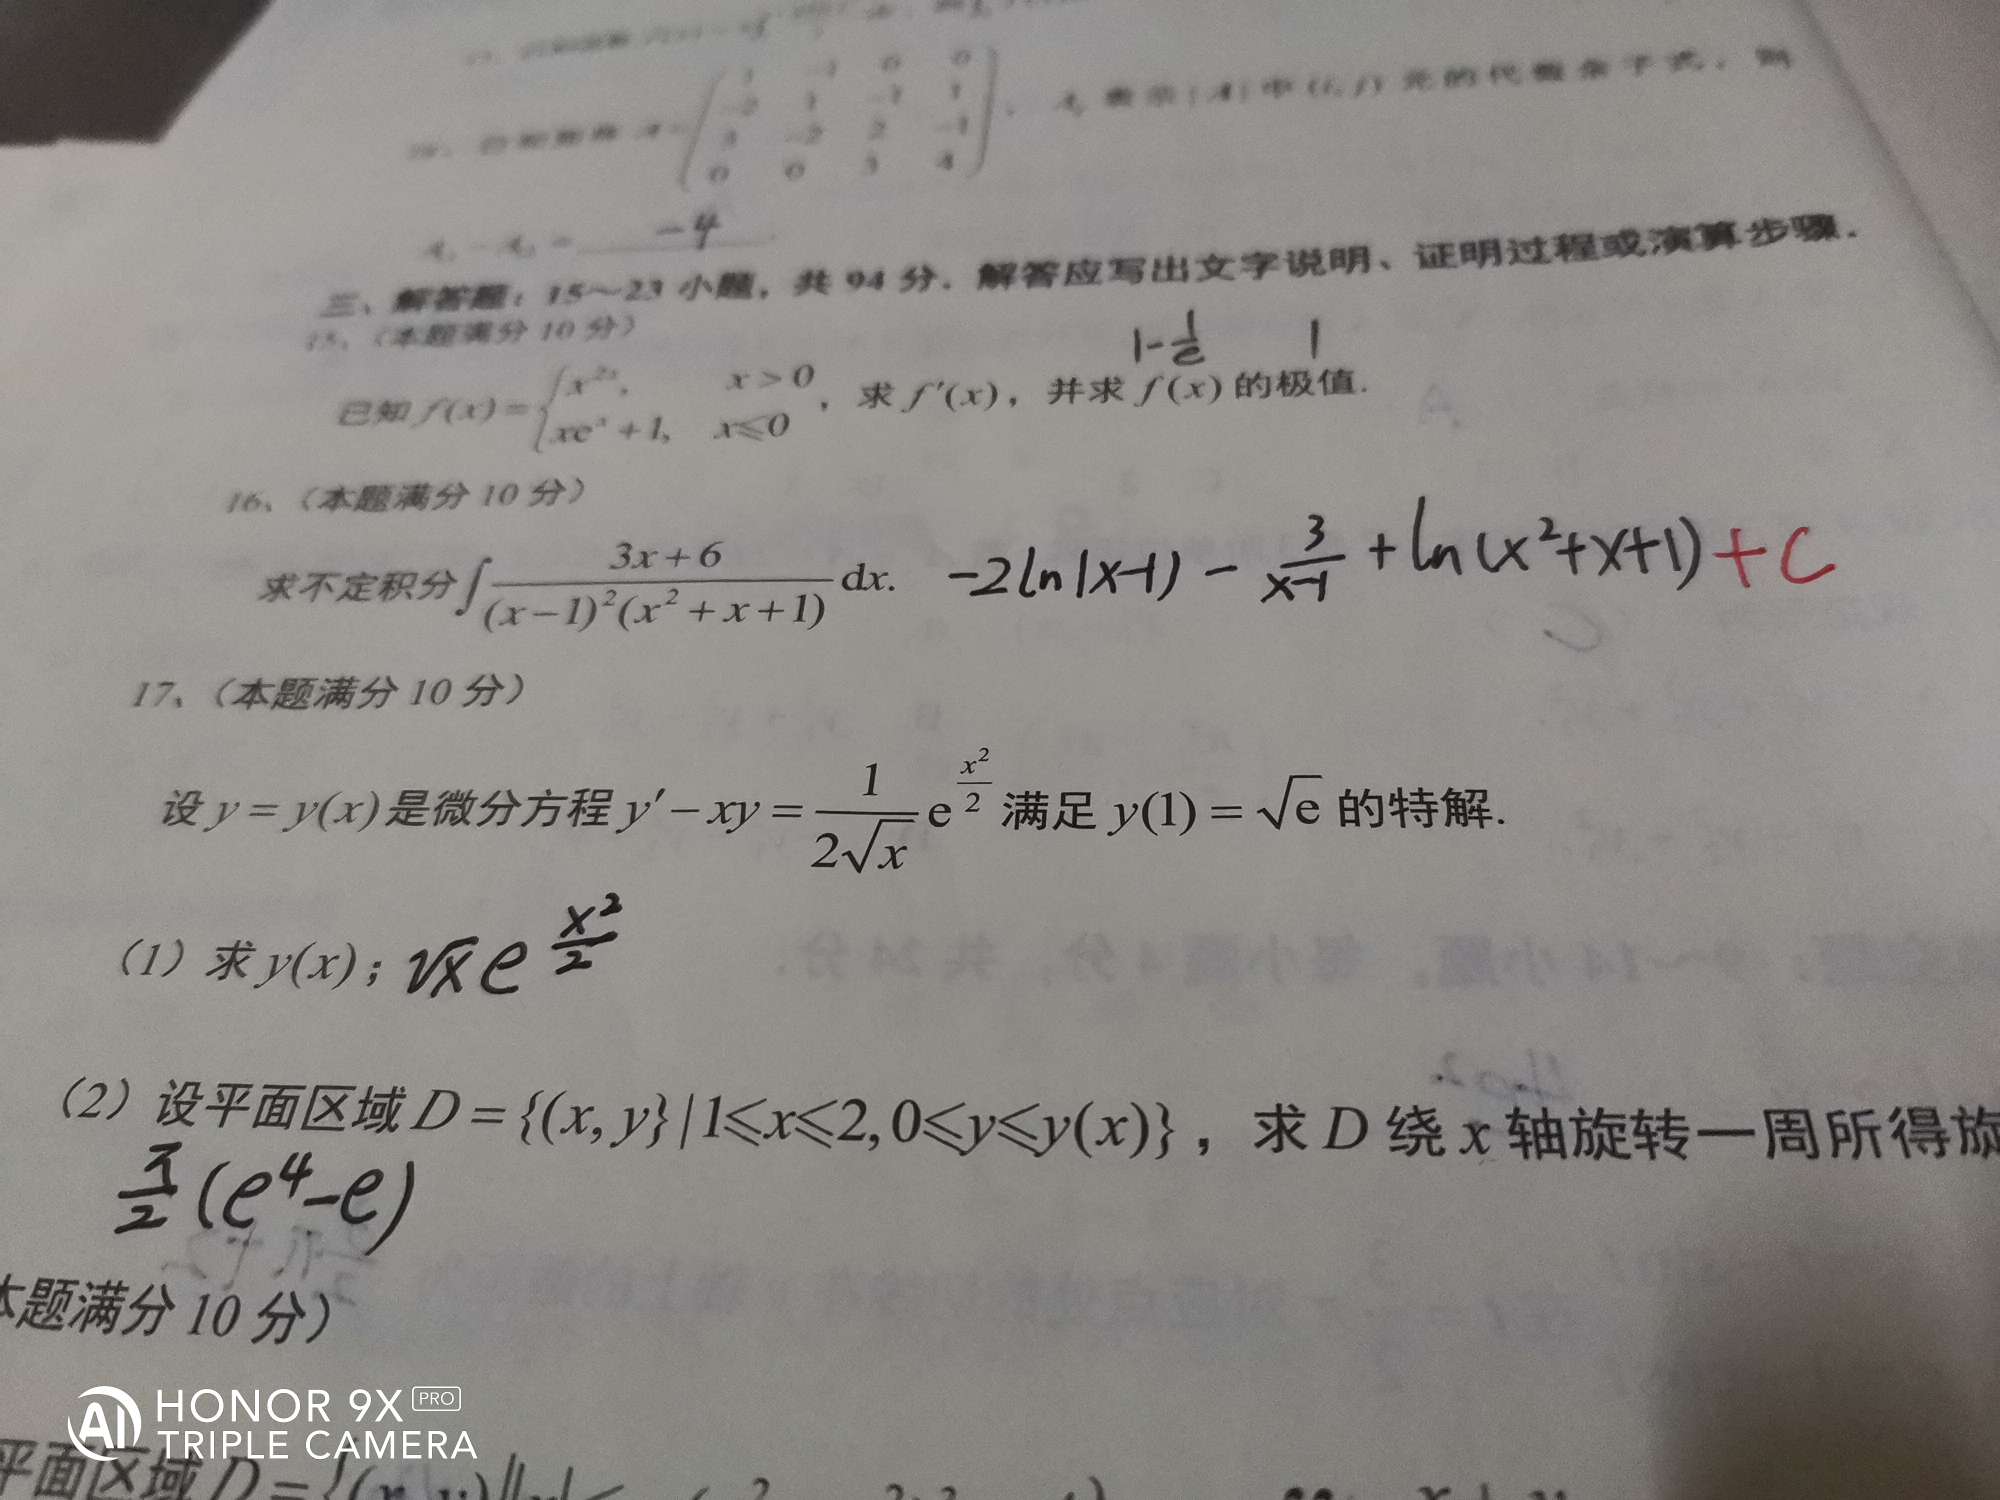 1 -1 0 0
-2 1 -1 1
3 -2 2 -1
0 0 3 4
表示|A|中(i, j)元的代数余子式，则
-4
三、解答题：15～23 小题，共 94 分．解答应写出文字说明、证明过程或演算步骤．
15、（本题满分 10 分）
1-1/e 1
已知 f(x)={x^{2x}, x>0; xe^x+1, x⩽0，求 f′(x)，并求 f(x) 的极值.
16、（本题满分 10 分）
求不定积分∫(3x+6)/((x−1)²(x²+x+1)) dx. -2ln|x-1| - 3/(x-1) + ln(x²+x+1)+C
17、（本题满分 10 分）
设 y = y(x) 是微分方程 y′ − xy = 1/(2√x) e^{x²/2} 满足 y(1) = √e 的特解.
（1）求 y(x)； √x e^{x²/2}
（2）设平面区域 D = {(x, y}|1⩽x⩽2, 0⩽y⩽y(x)}，求 D 绕 x 轴旋转一周所得旋
π/2 (e⁴-e)
本题满分 10 分）
HONOR 9X PRO
TRIPLE CAMERA
平面区域 D =